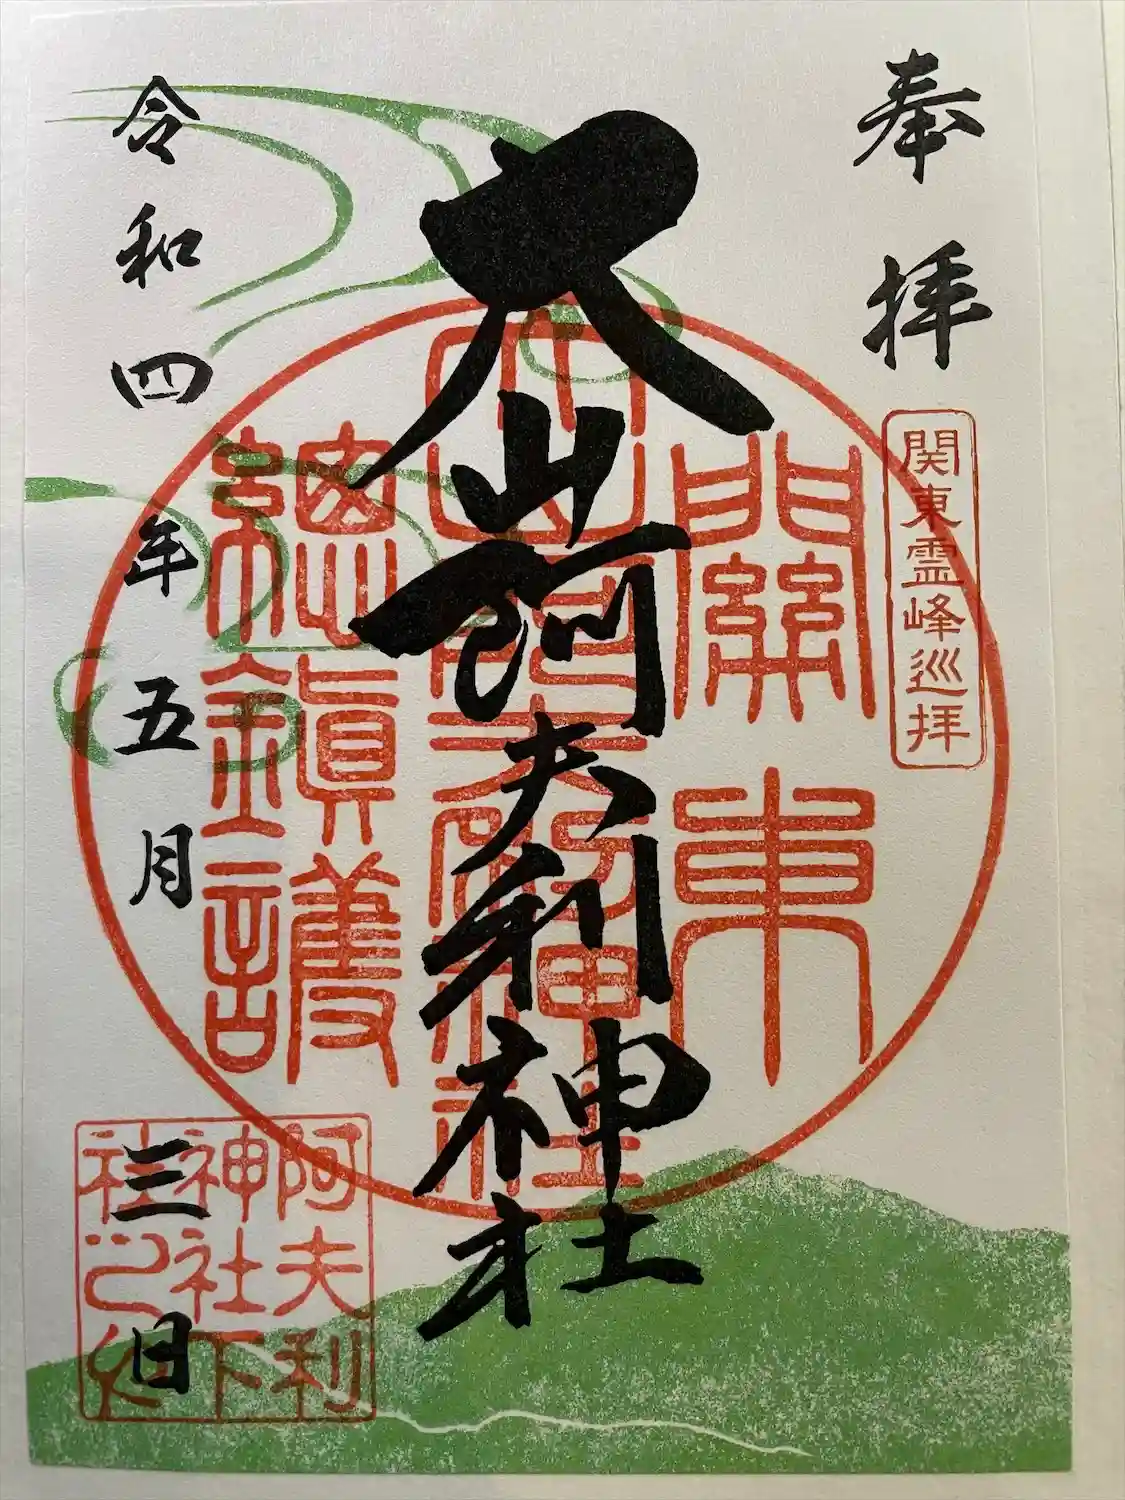 奉拝
関東霊峰巡拝
關東
大山阿夫利神社
總鎮護
大山阿夫利神社
令和四年五月三日
阿夫利
神社下
社之印